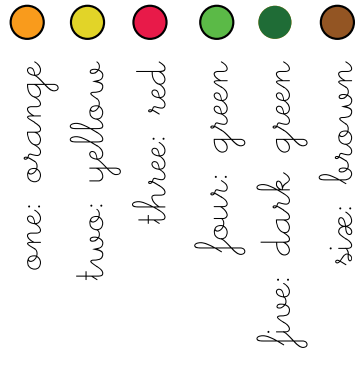 one: orange
two: yellow
three: red
four: green
five: dark green
six: brown